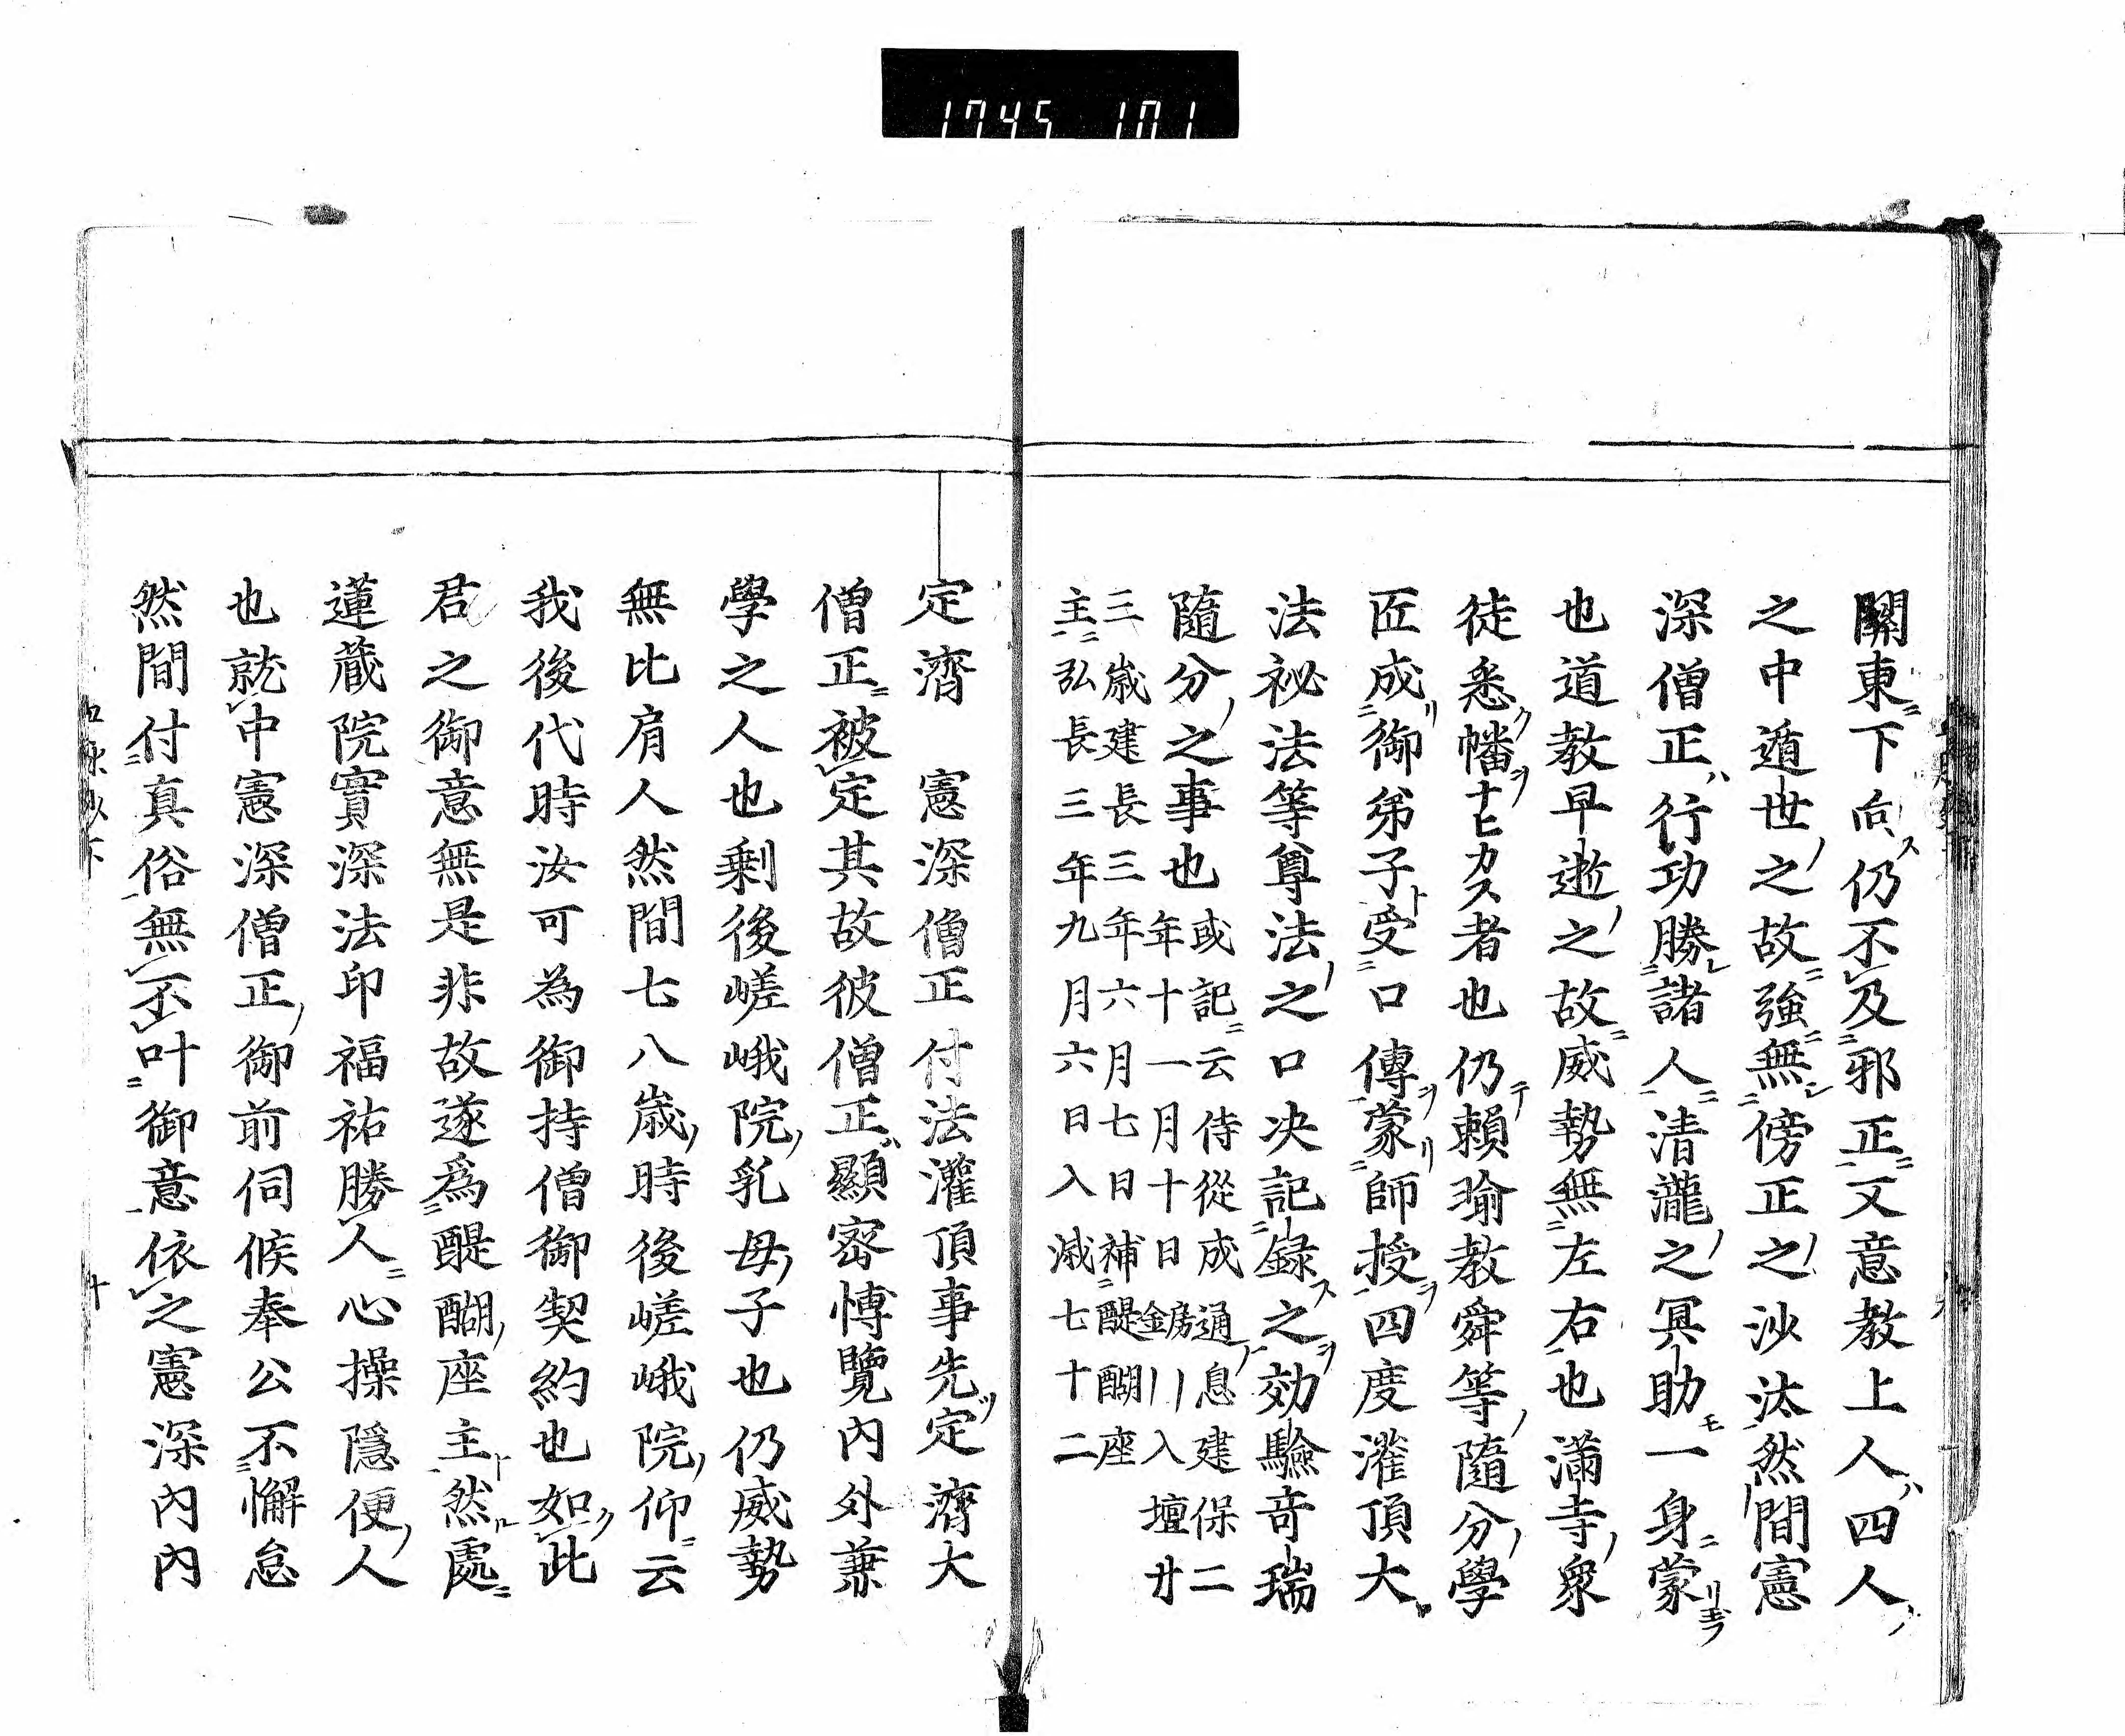 1745 101
關東ニ下向ス仍不及邪正ニ又意教上人ハ四人ノ
之中遁世ノ之故ニ強ニ無傍正之沙汰然間憲
深僧正ハ行功勝諸人ニ清瀧ノ之冥助モ一身ニ蒙リ玉フ
也道教早逝ノ之故ニ威勢無左右也滿寺ノ衆
徒悉ク幡ヲナヒカス者也仍テ頼瑜教舜等ノ隨分ノ學
匠成リ御弟子ト受口傳ヲ蒙リ師授ヲ四度灌頂大
法祕法等尊法ノ之口决記録ス之ヲ効驗奇瑞
隨分ノ之事也
或記ニ云侍從成通ノ息建保二
年十一月十日金剛入壇廿
三歳建長三年六月七日補醍醐座
主弘長三年九月六日入滅七十二
定濟 憲深僧正付法灌頂事先ツ定濟大
僧正ニ被定其故彼僧正顯密博覽内外兼
學之人也剰後嵯峨院ノ乳母ノ子也仍威勢
無比肩人然間七八歳ノ時後嵯峨院ノ仰ニ云
我後代時汝可為御持僧御契約也如ク此
君之御意無是非故遂爲醍醐ノ座主ト然ルニ處
蓮蔵院實深法印福祐勝人ニ心操隱便ノ人
也就中憲深僧正ノ御前伺候奉公不懈怠
然間付真俗無不叶御意依之憲深内内